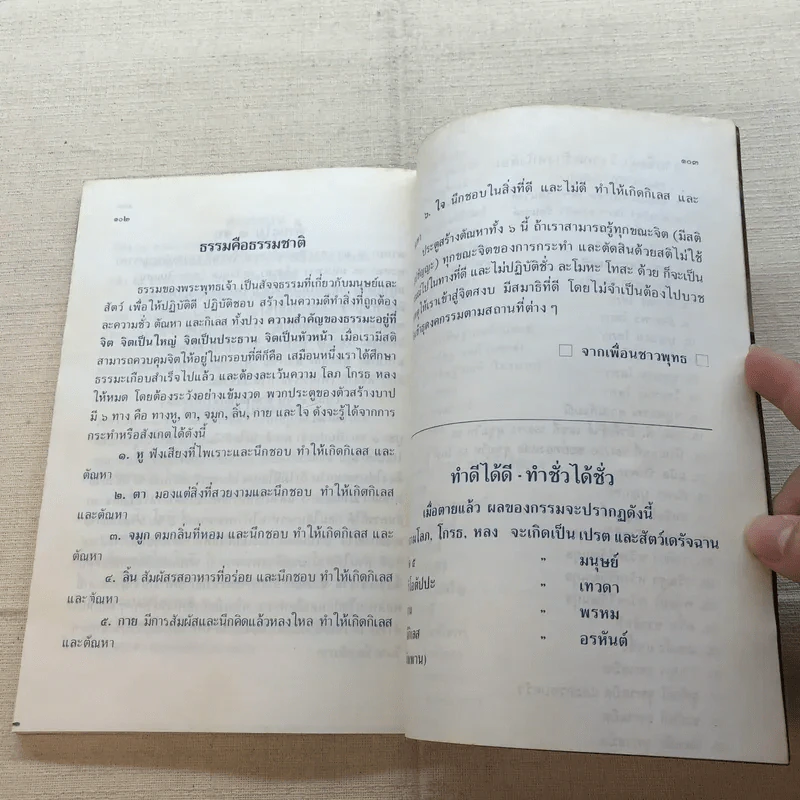 ๑๐๒
ธรรมคือธรรมชาติ
ธรรมของพระพุทธเจ้า เป็นสัจจธรรมที่เกี่ยวกับมนุษย์และ
สัตว์ เพื่อให้ปฏิบัติดี ปฏิบัติชอบ สร้างในความดีทำสิ่งที่ถูกต้อง
ละความชั่ว ตัณหา และกิเลส ทั้งปวง ความสำคัญของธรรมะอยู่ที่
จิต จิตเป็นใหญ่ จิตเป็นประธาน จิตเป็นหัวหน้า เมื่อเรามีสติ
สามารถควบคุมจิตให้อยู่ในกรอบที่ดีก็คือ เสมือนหนึ่งเราได้ศึกษา
ธรรมะเกือบสำเร็จไปแล้ว และต้องละเว้นความ โลภ โกรธ หลง
ให้หมด โดยต้องระวังอย่างเข้มงวด พวกประตูของตัวสร้างบาป
มี ๖ ทาง คือ ทางหู, ตา, จมูก, ลิ้น, กาย และใจ ดังจะรู้ได้จากการ
กระทำหรือสังเกตได้ดังนี้
๑. หู ฟังเสียงที่ไพเราะและนึกชอบ ทำให้เกิดกิเลส และ
ตัณหา
๒. ตา มองแต่สิ่งที่สวยงามและนึกชอบ ทำให้เกิดกิเลส
และตัณหา
๓. จมูก ดมกลิ่นที่หอม และนึกชอบ ทำให้เกิดกิเลส และ
ตัณหา
๔. ลิ้น สัมผัสรสอาหารที่อร่อย และนึกชอบ ทำให้เกิดกิเลส
และตัณหา
๕. กาย มีการสัมผัสและนึกคิดแล้วหลงใหล ทำให้เกิดกิเลส
และตัณหา
๑๐๓
๖. ใจ นึกชอบในสิ่งที่ดี และไม่ดี ทำให้เกิดกิเลส และ
ประตูสร้างตัณหาทั้ง ๖ นี้ ถ้าเราสามารถรู้ทุกขณะจิต (มีสติ
ทุกขณะจิตของการกระทำ และตัดสินด้วยสติไม่ใช้
ไปในทางที่ดี และไม่ปฏิบัติชั่ว ละโมหะ โทสะ ด้วย ก็จะเป็น
ให้เราเข้าสู่จิตสงบ มีสมาธิที่ดี โดยไม่จำเป็นต้องไปบวช
ตามสถานที่ต่าง ๆ
จากเพื่อนชาวพุทธ
ทำดีได้ดี - ทำชั่วได้ชั่ว
เมื่อตายแล้ว ผลของกรรมจะปรากฏดังนี้
โลภ, โกรธ, หลง จะเกิดเป็น เปรต และสัตว์เดรัจฉาน
๕ " มนุษย์
" เทวดา
" พรหม
" อรหันต์